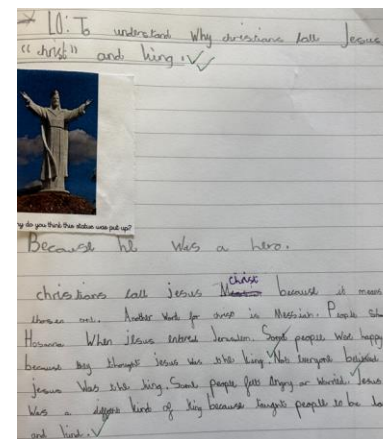 LO: To understand Why christians call Jesus
"christ" and king.
y do you think this statue was put up?
Because he was a hero.
christ
christians call jesus because it means
chosen one. Another Word for christ is Messiah. People
Hosanna When jesus entered Jerusalem. Some people was happy
because they thought jesus was the king. Not everyone believed
jesus Was the king. Some people felt Angry or Worried. Jesus
Was a different kind of king because taught people to be
and kind.